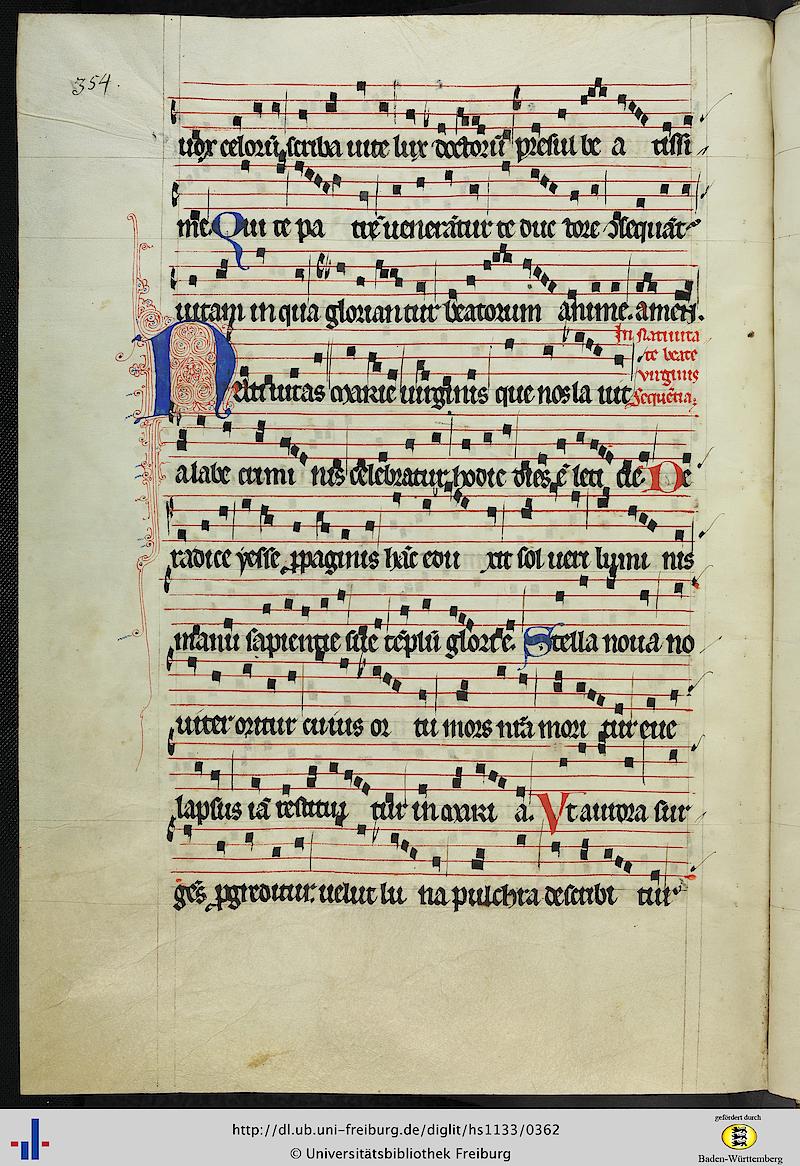 354.
udex celorū. scriba uite lux doctorū presul be a tissi
me. Qui te pa trē uenerātur te duc tore ɔsequāt̄
uitam in qua gloriantur beatorum anime. amen.
In natiuita
te beate
uirginis
Sequētia.
Natiuitas marie uirginis que nos la uit
a labe crimi nis celebratur hodie dies ē leti cie. De
radice yesse ꝓpaginis hāc edu xit sol ueri lumi nis
manu sapientie sue tēplū glorie. Stella noua no
uiter oritur cuius or tu mors nrā mori tur eue
lapsus iā restitui tur in mari a. Vt aurora sur
gēs ꝓgreditur. uelut lu na pulchra describi tur
http://dl.ub.uni-freiburg.de/diglit/hs1133/0362
© Universitätsbibliothek Freiburg
gefördert durch
Baden-Württemberg